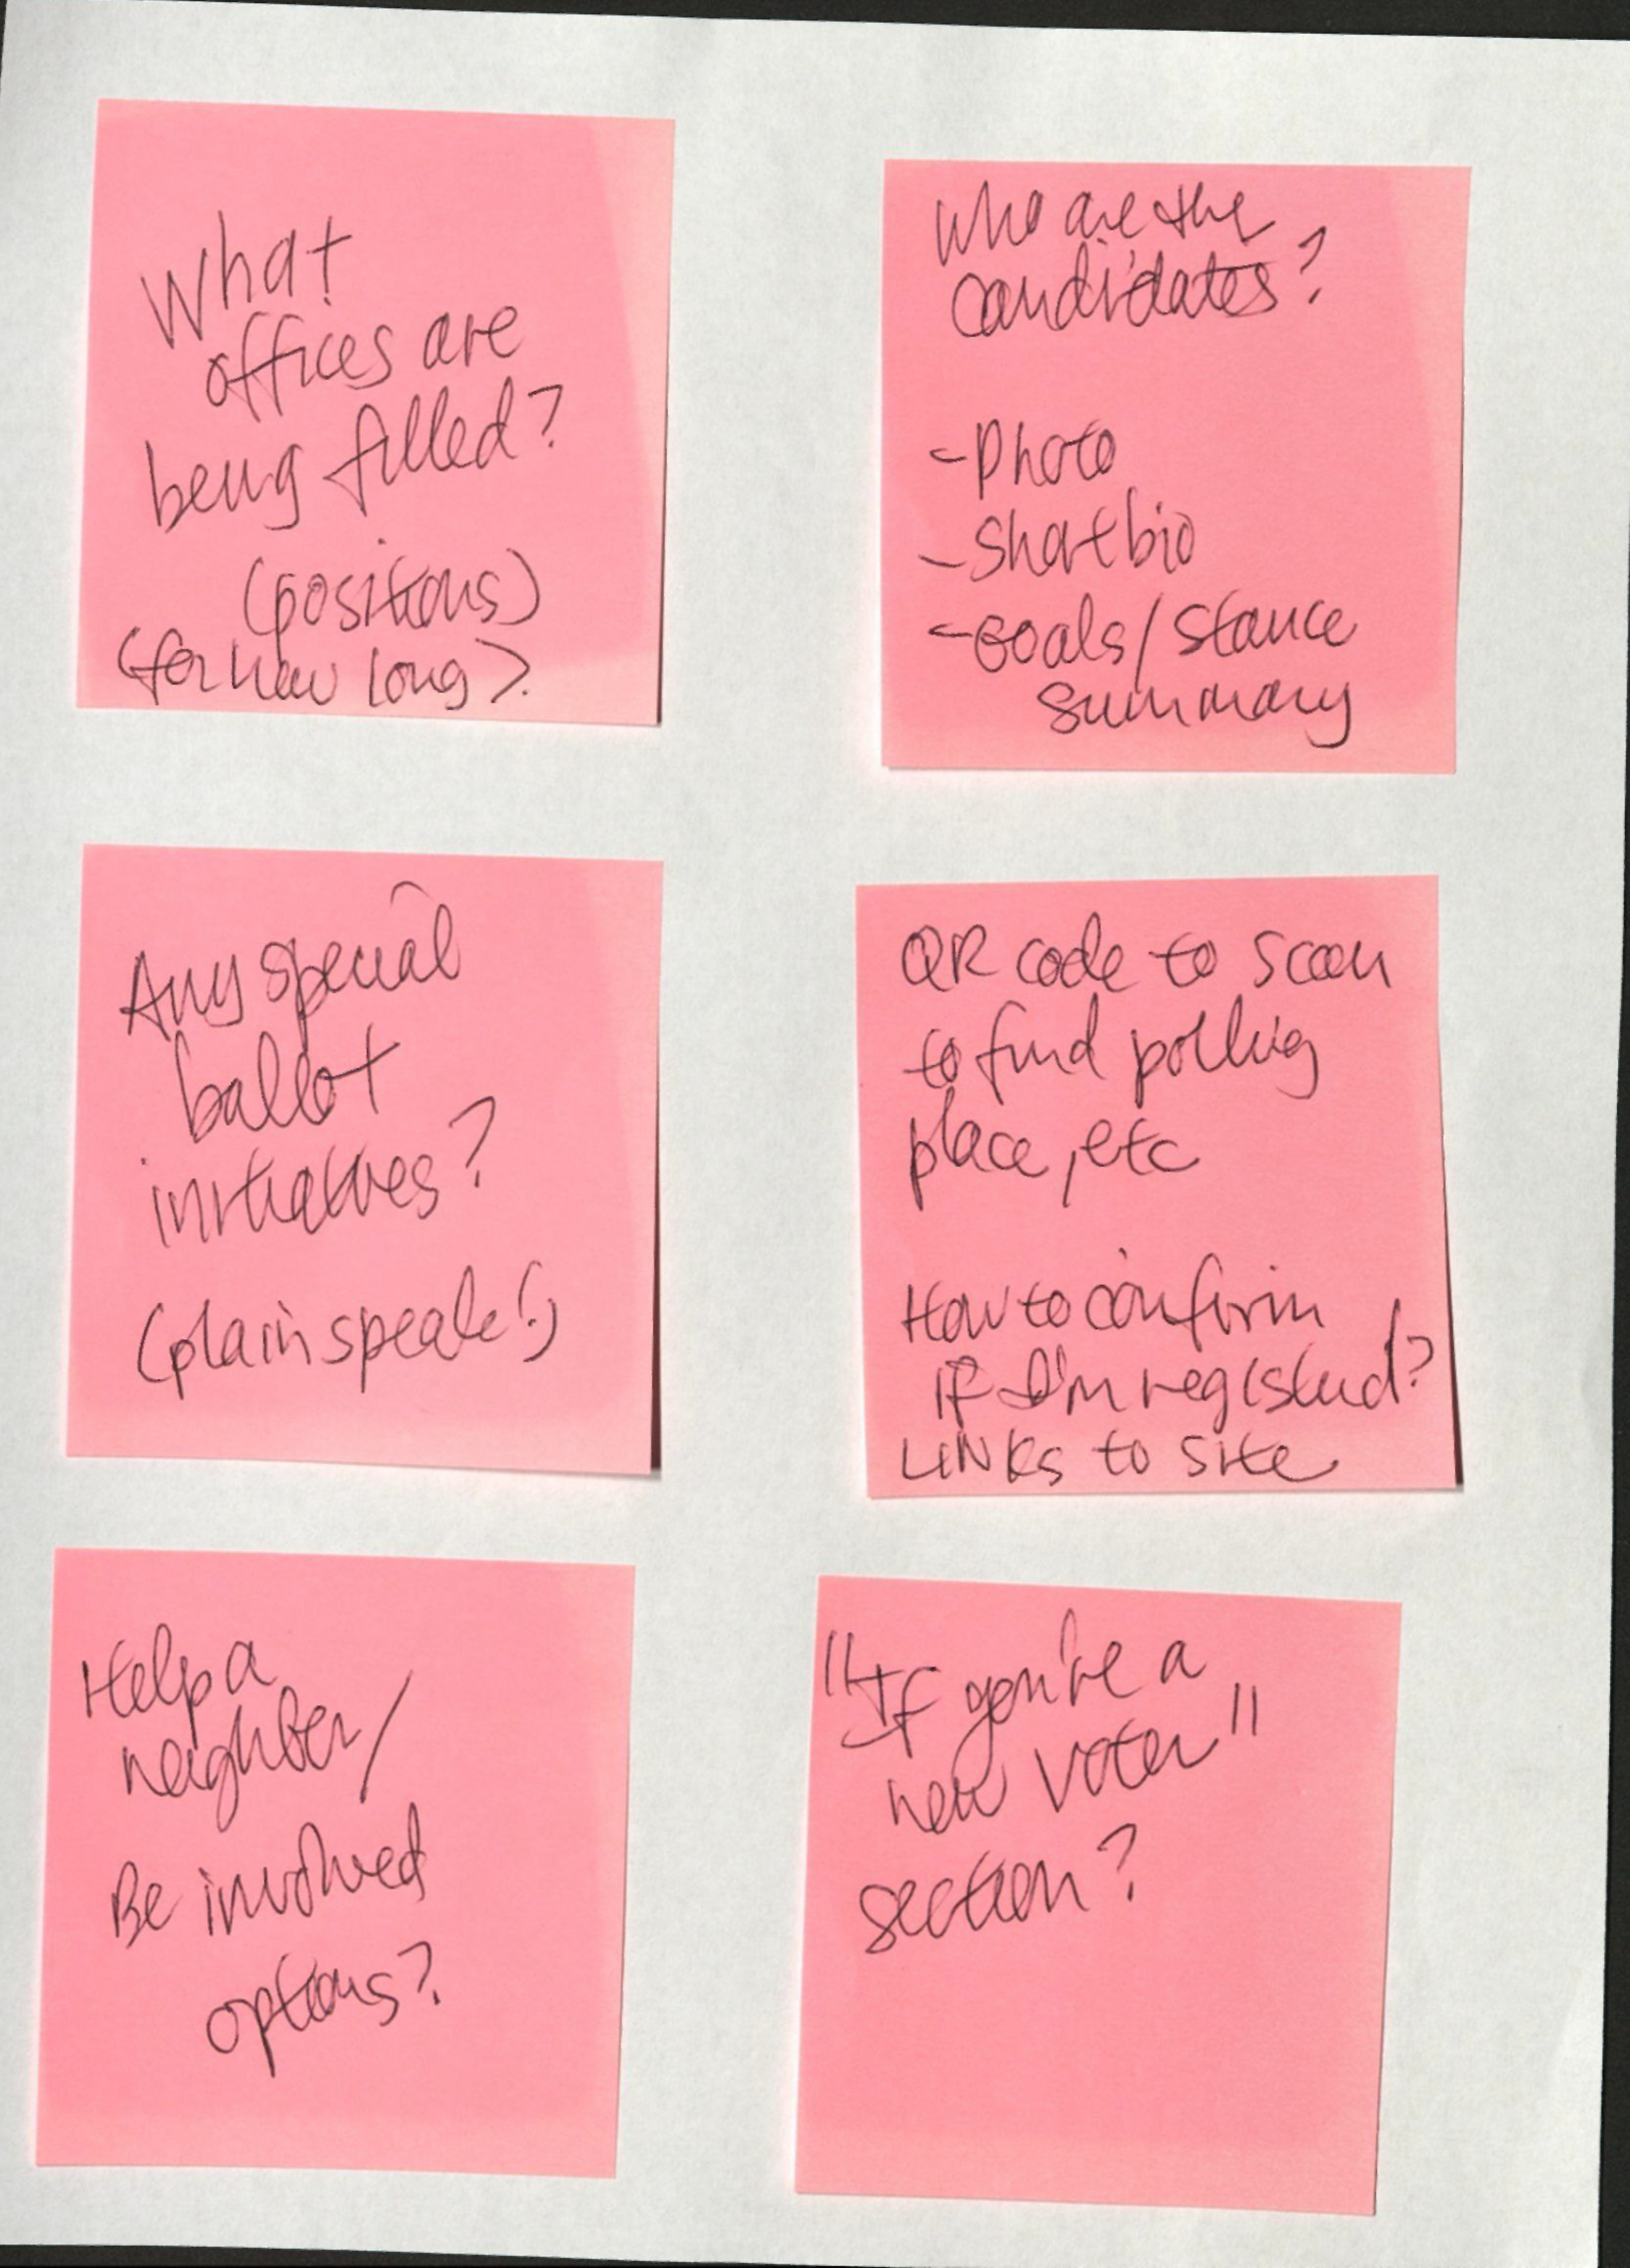 What
offices are
being filled?
(positions)
(for how long?
Who are the
candidates?
- Photo
- Short bio
- Goals/stance
summary
Any special
ballot
initiatives?
(plain speak!)
QR code to scan
to find polling
place, etc
How to confirm
if I'm registered?
LINKs to site
Help a
neighbor/
Be involved
options?
"If you're a
new voter"
section?